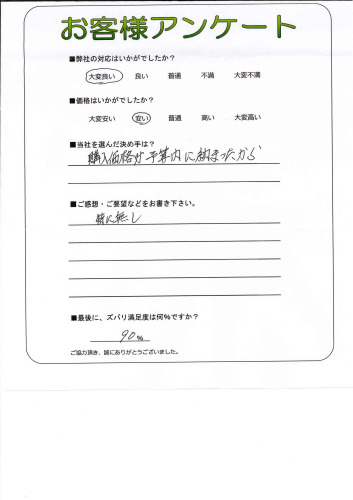 お客様アンケート
■弊社の対応はいかがでしたか？
大変良い 良い 普通 不満 大変不満
■価格はいかがでしたか？
大変安い 安い 普通 高い 大変高い
■当社を選んだ決め手は？
購入価格が予算内に納まったから
■ご感想・ご要望などをお書き下さい。
特に無し
■最後に、ズバリ満足度は何％ですか？
90％
ご協力頂き、誠にありがとうございました。